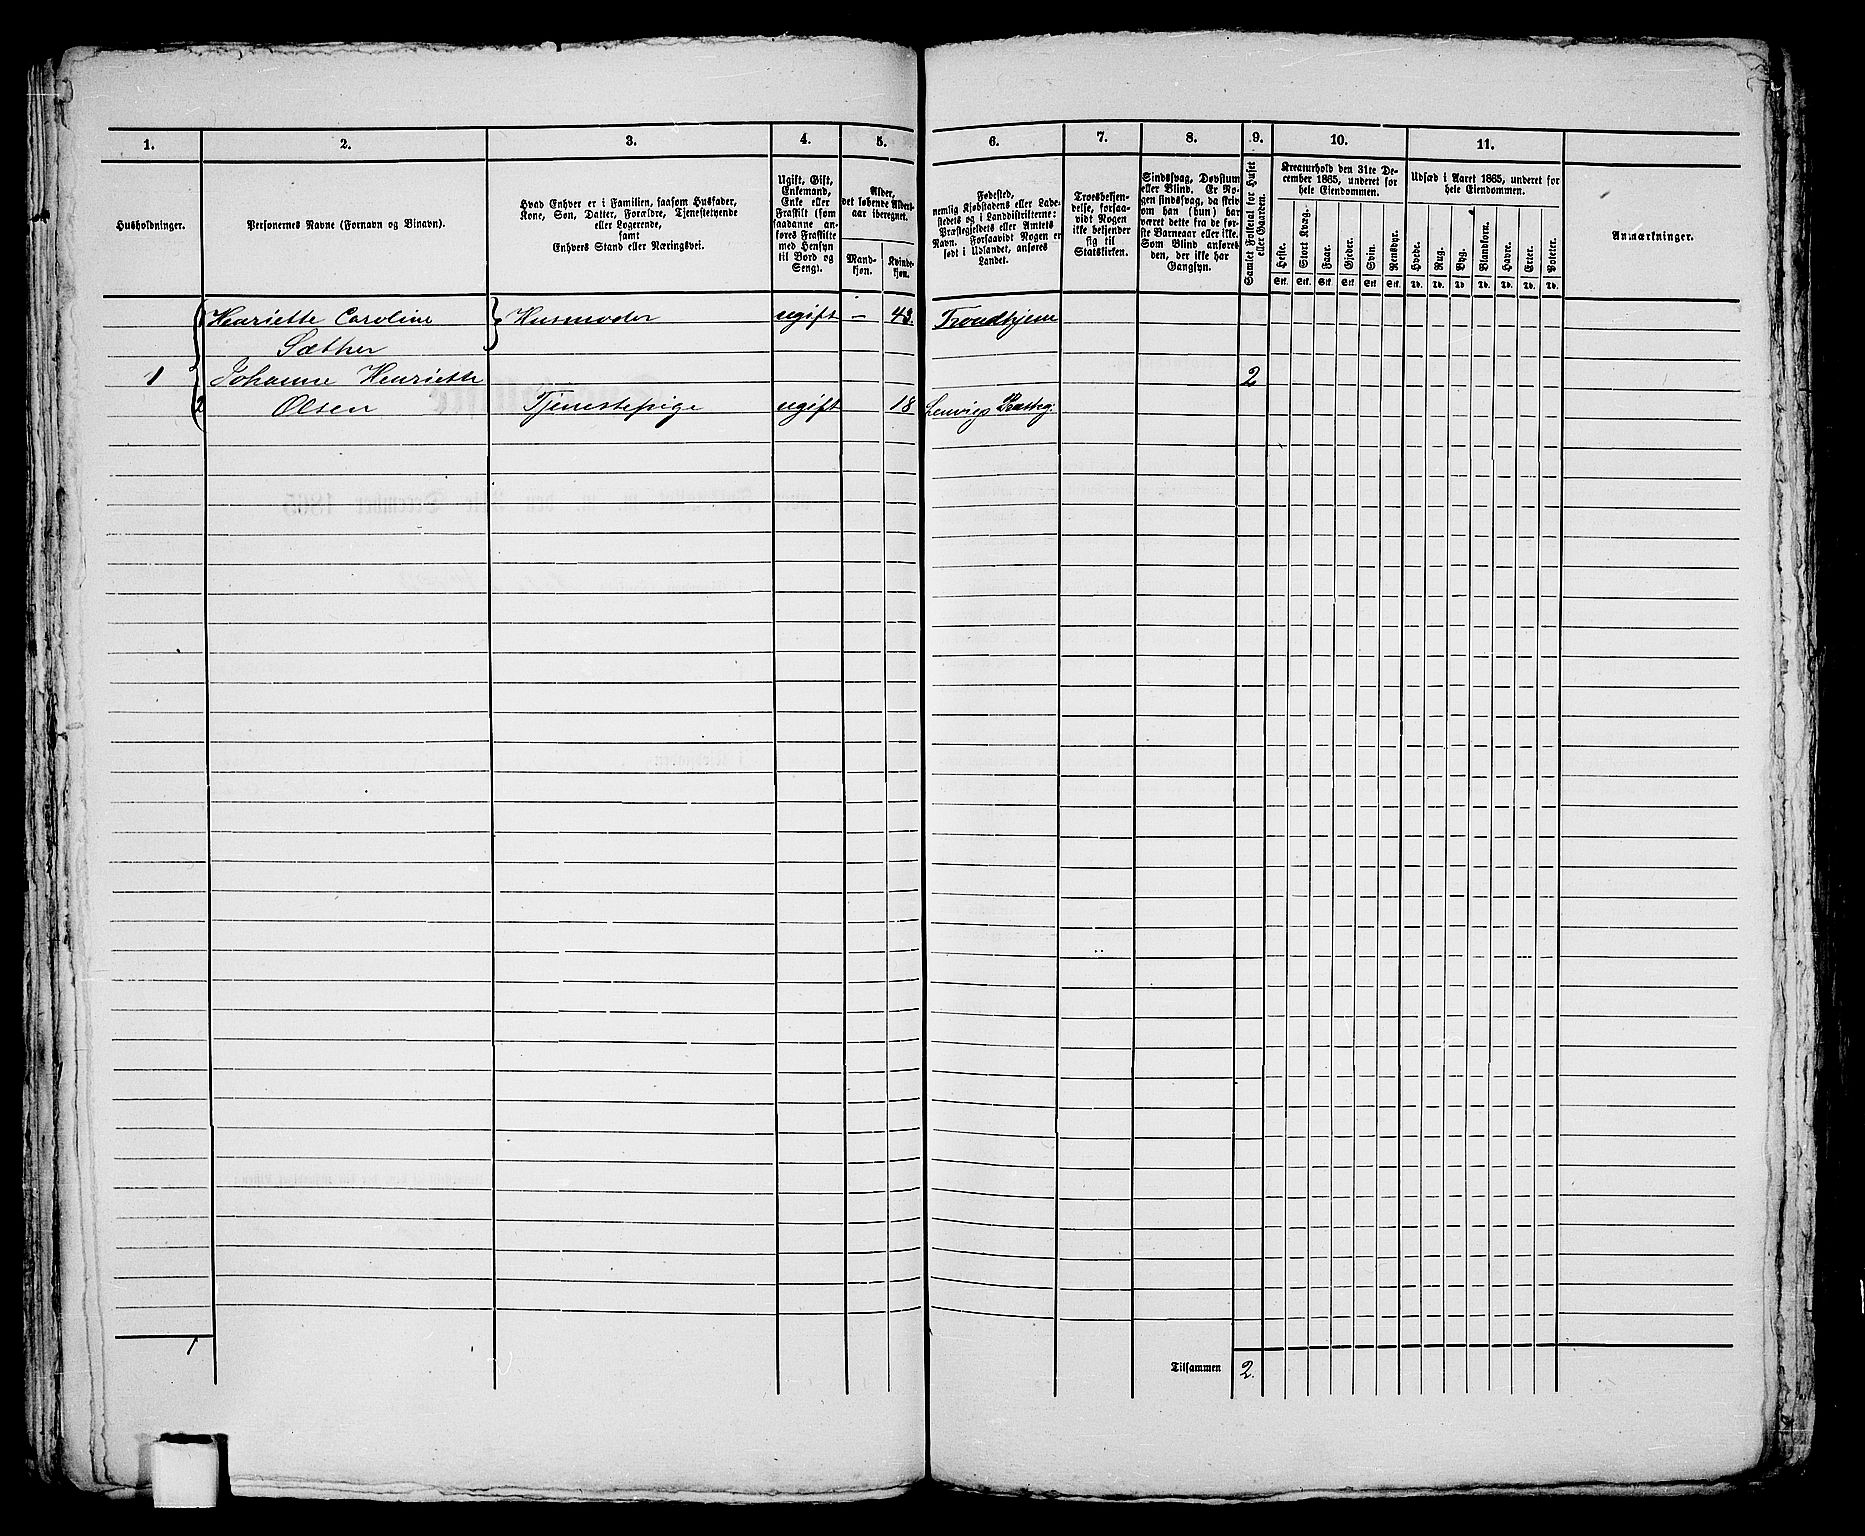 1.
2.
3.
4.
5.
6.
7.
8.
9.
10.
11.
Husholdninger.
Personernes Navne (Fornavn og Binavn).
Hvad Enhver er i Familien, saasom Husfader,
Kone, Søn, Datter, Forældre, Tjenestetyende
eller Logerende,
samt
Enhvers Stand eller Næringsvei.
Ugift, Gift,
Enkemand,
Enke eller
Fraskilt (som
saadanne an-
føres Fraskilte
med Hensyn
til Bord og
Seng).
Alder,
det løbende Alders-
aar iberegnet.
Mand-
kjøn.
Kvinde-
kjøn.
Fødested,
nemlig Kjøbstadens eller Lade-
stedets og i Landdistrikterne:
Præstegjeldets eller Amtets
Navn. Forsaavidt Nogen er
født i Udlandet, anføres
Landet.
Troesbekjen-
delse, forsaa-
vidt Nogen
ikke bekjender
sig til
Statskirken.
Sindssvag, Døvstum
eller Blind. Er No-
gen sindssvag, da skriv
om han (hun) har
været dette fra de før-
ste Barneaar eller ikke.
Som Blind anføres
den, der ikke har
Gangsyn.
Samlet Folketal for Huset
eller Gaarden.
Kreaturhold den 31te De-
cember 1865, underet for
hele Eiendommen.
Heste. Stort Kvæg. Faar. Gjeder. Svin. Rensdyr.
Stk. Stk. Stk. Stk. Stk. Stk.
Udsæd i Aaret 1865, underet for
hele Eiendommen.
Hvede. Rug. Byg. Blandkorn. Havre. Erter. Poteter.
Td. Td. Td. Td. Td. Td. Td.
Anmærkninger.
Henriette Caroline } Husmoder ugift – 43. Trondhjem
Sæther
1 Johanne Henriette 2
2 Olsen Tjenestepige ugift 18 Lenvigs Præsteg.
1
Tilsammen 2.